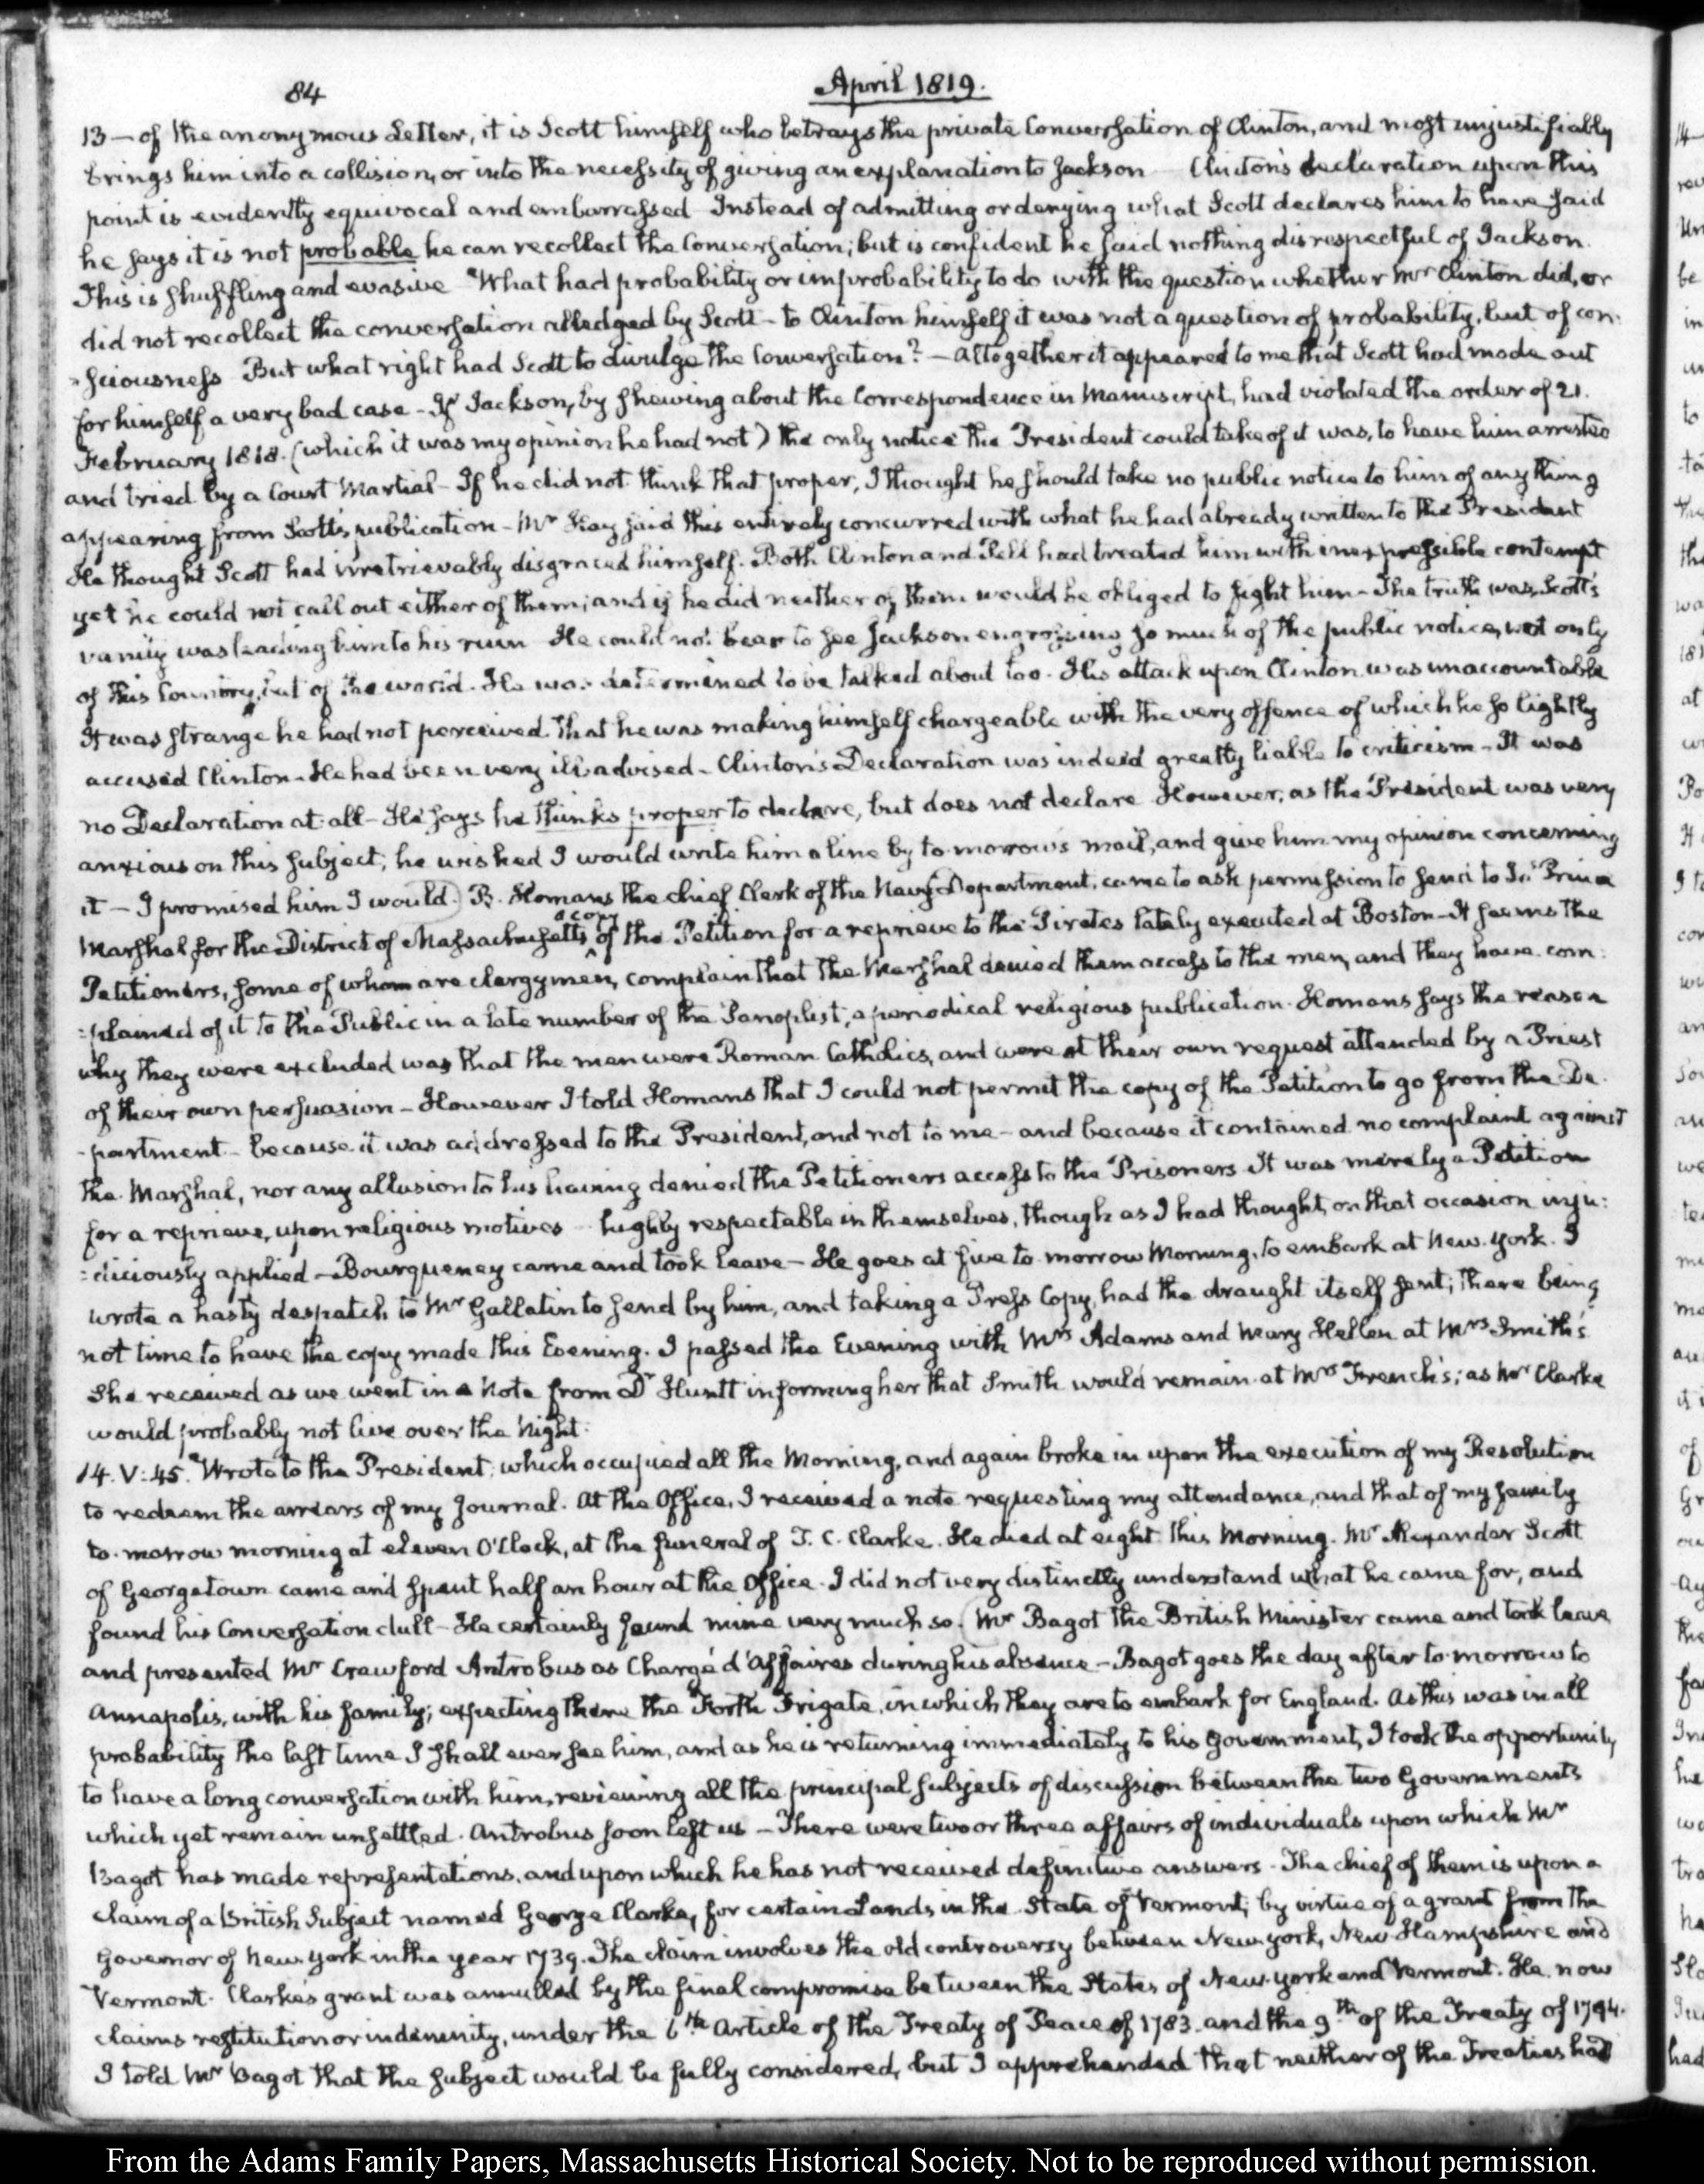 84
April 1819.
13 — of the anonymous Letter, it is Scott himself who betrays the private Conversation of Clinton, and most unjustifiably
brings him into a collision, or into the necessity of giving an explanation to Jackson Clinton's declaration upon this
point is evidently equivocal and embarrassed Instead of admitting or denying what Scott declares him to have said
he says it is not probable he can recollect the Conversation; but is confident he said nothing disrespectful of Jackson.
This is shuffling and evasive What had probability or improbability to do with the question whether Mr Clinton did, or
did not recollect the conversation alledged by Scott - to Clinton himself it was not a question of probability, but of con:
:sciousness But what right had Scott to divulge the Conversation? — Altogether it appeared to me that Scott had made out
for himself a very bad case - If Jackson, by shewing about the Correspondence in Manuscript, had violated the order of 21.
February 1818. (which it was my opinion he had not) the only notice the President could take of it was, to have him arrested
and tried by a Court Martial - If he did not think that proper, I thought he should take no public notice to him of any thing
appearing from Scott's publication - Mr said this entirely concurred with what he had already written to the President
He thought Scott had irretrievably disgraced himself. Both Clinton and had treated him with inexpressible contempt
yet he could not call out either of them; and if he did neither of them would be obliged to fight him - The truth was, Scott's
vanity was leading him to his ruin He could not bear to see Jackson engrossing so much of the public notice, not only
of this Country, but of the world. He was determined to be talked about too. His attack upon Clinton was unaccountable
It was strange he had not perceived that he was making himself chargeable with the very offence of which he so lightly
accused Clinton - He had been very ill advised - Clinton's Declaration was indeed greatly liable to criticism - It was
no Declaration at all - He says he thinks proper to declare, but does not declare However, as the President was very
anxious on this subject, he wished I would write him a line by to-morrow's mail, and give him my opinion concerning
it — I promised him I would. B. Homans the chief Clerk of the Navy Department, came to ask permission to send to Prince
Marshal for the District of Massachusetts a copy of the Petition for a reprieve to the Pirates lately executed at Boston - It seems the
Petitioners, some of whom are clergymen, complain that the Marshal denied them access to the men, and they have com:
:plained of it to the Public in a late number of the Panoplist, a periodical religious publication. Homans says the reason
why they were excluded was that the men were Roman Catholics, and were at their own request attended by a Priest
of their own persuasion - However I told Homans that I could not permit the copy of the Petition to go from the De
-partment - because it was addressed to the President, and not to me - and because it contained no complaint against
the Marshal, nor any allusion to his having denied the Petitioners access to the Prisoners It was merely a Petition
for a reprieve, upon religious motives highly respectable in themselves, though as I had thought, on that occasion inju:
:diciously applied - Bourqueney came and took leave - He goes at five to-morrow Morning, to embark at New-York. I
wrote a hasty despatch to Mr Gallatin to send by him, and taking a Press Copy, had the draught itself sent; there being
not time to have the copy made this Evening. I passed the Evening with Mrs Adams and Mary Hellen at Mrs Smith's
She received as we went in a Note from Dr Huntt informing her that Smith would remain at Mrs French's; as Mr Clarke
would probably not live over the Night.
14. V:45. Wrote to the President, which occupied all the Morning, and again broke in upon the execution of my Resolution
to redeem the arrears of my Journal. At the Office, I received a note requesting my attendance, and that of my family
to-morrow morning at eleven O'Clock, at the funeral of T. C. Clarke. He died at eight this Morning. Mr Alexander Scott
of Georgetown came and spent half an hour at the Office. I did not very distinctly understand what he came for, and
found his Conversation dull - He certainly found mine very much so. Mr Bagot the British Minister came and took leave
and presented Mr Crawford Antrobus as Chargé d'Affaires during his absence. - Bagot goes the day after to-morrow to
Annapolis, with his family; expecting there the Forth Frigate, in which they are to embark for England. As this was in all
probability the last time I shall ever see him, and as he is returning immediately to his Government, I took the opportunity
to have a long conversation with him, reviewing all the principal subjects of discussion between the two Governments
which yet remain unsettled. Antrobus soon left us - There were two or three affairs of individuals upon which Mr
Bagot has made representations, and upon which he has not received definitive answers - The chief of them is upon a
claim of a British Subject named George Clarke, for certain Lands in the State of Vermont; by virtue of a grant from the
Governor of New-York in the year 1739. The claim involves the old controversy between New-York, New-Hampshire and
Vermont. Clarke's grant was annulled by the final compromise between the States of New-York and Vermont. He now
claims restitution or indemnity, under the 6th Article of the Treaty of Peace of 1783. and the 9th of the Treaty of 1794.
I told Mr Bagot that the subject would be fully considered, but I apprehended that neither of the Treaties had
From the Adams Family Papers, Massachusetts Historical Society. Not to be reproduced without permission.